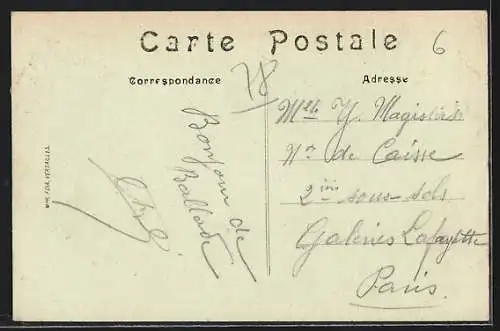 Carte Postale
6
Correspondance
Adresse
28
Bonjour de
Ballade
Mlle Y. Magistris
No de Caisse
2ième sous-sols
Galeries Lafayette
Paris